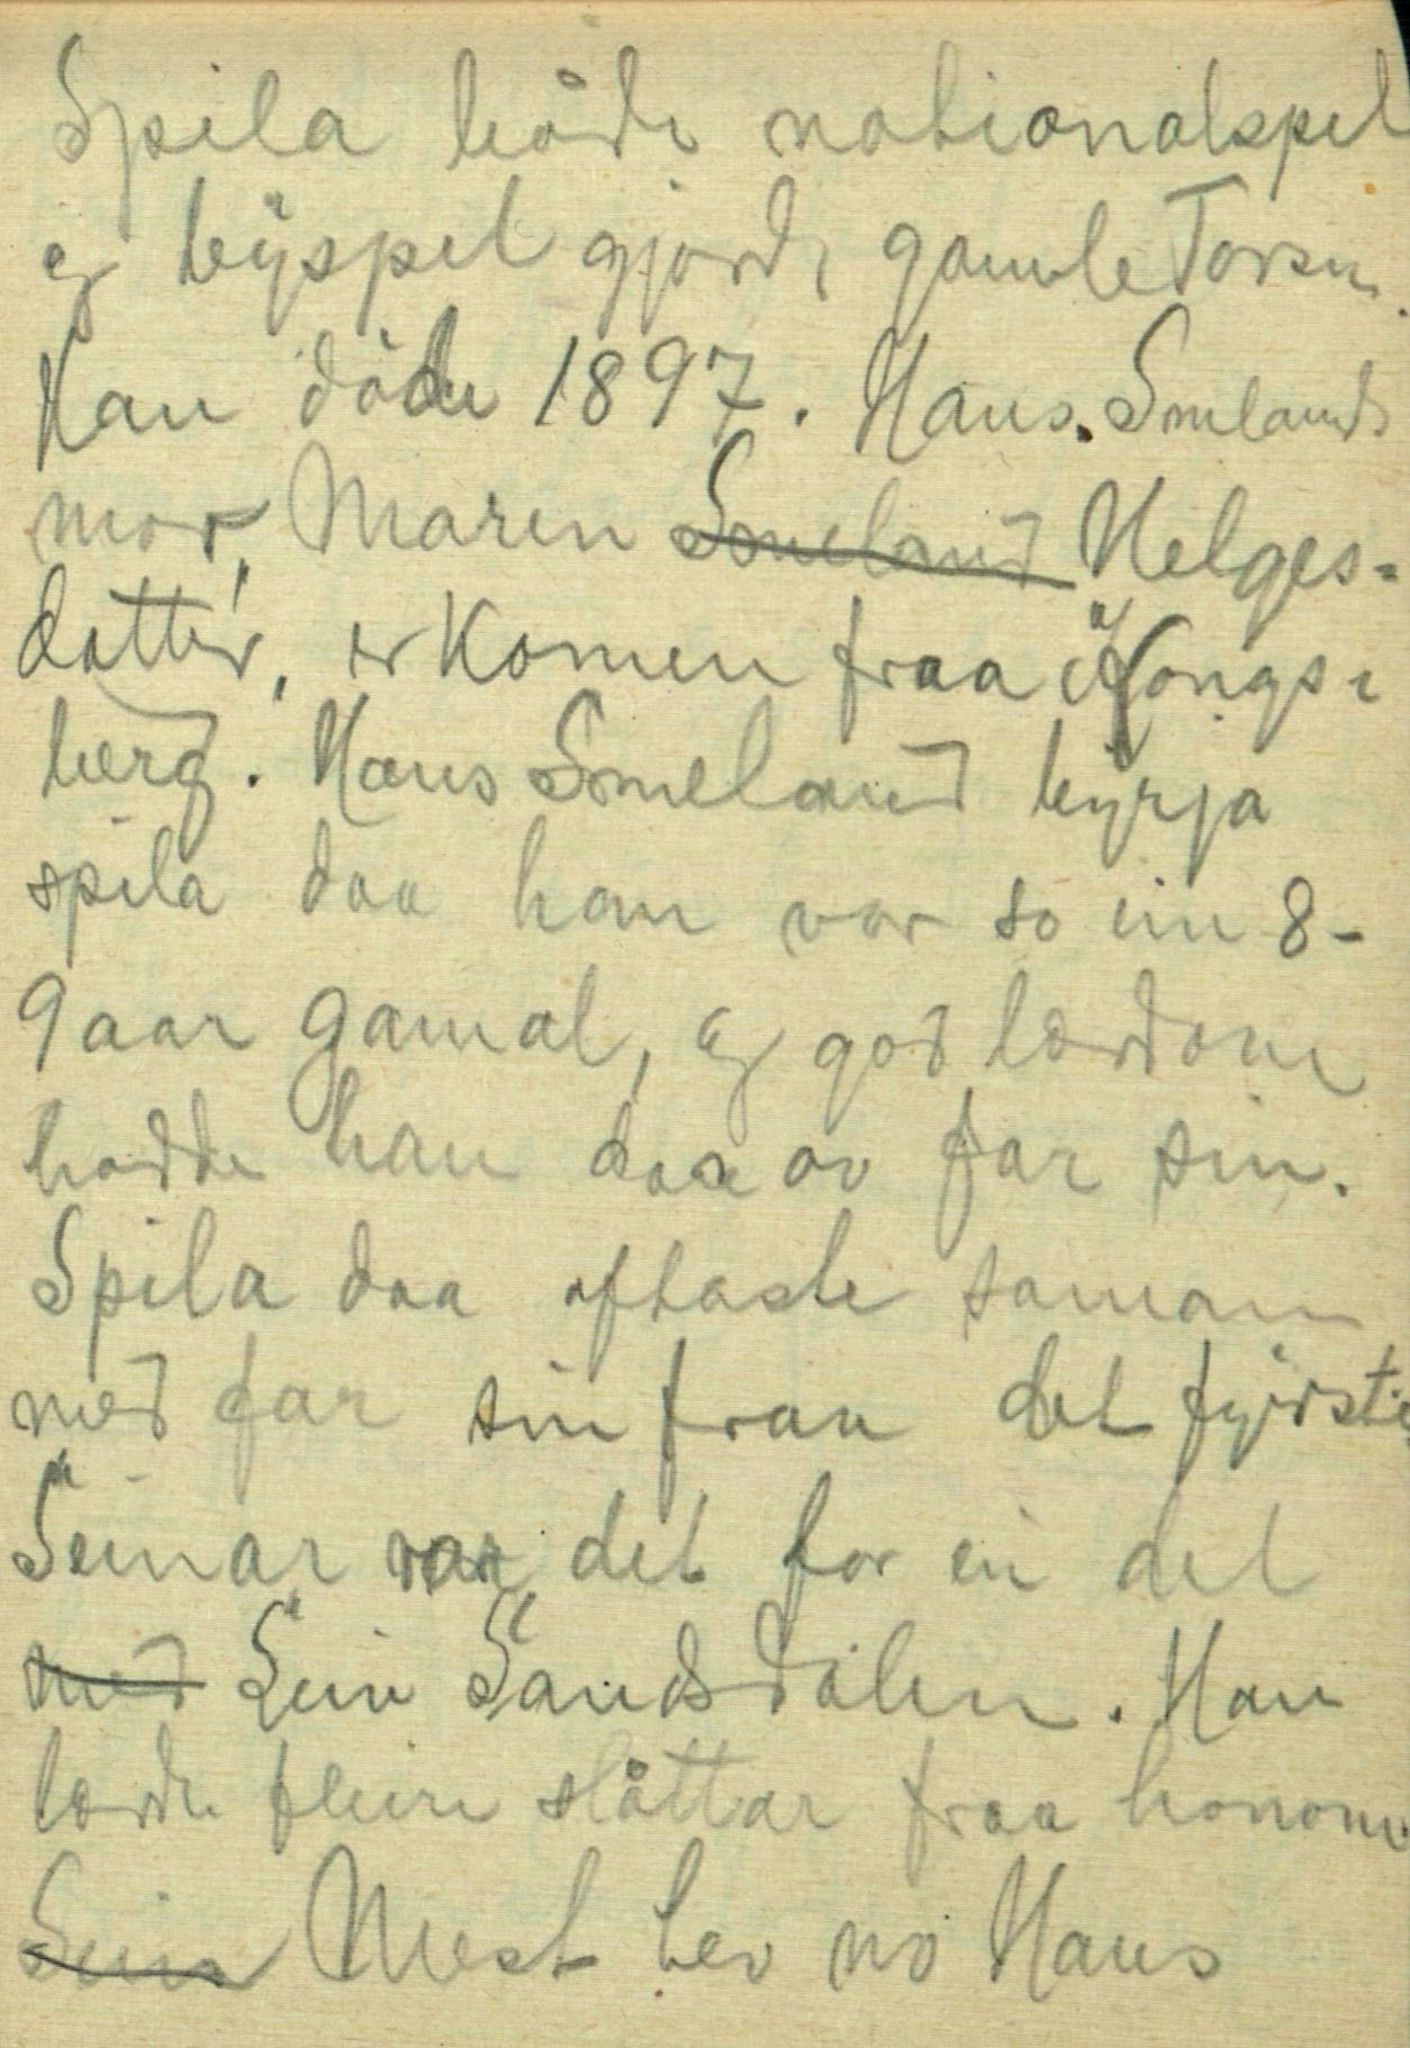 Spila både nationalspel
og byspel gjorde gamle Torsn.
Han döde 1897. Hans Smelands
mor, Maren Smeland Helges-
dotter, er komen fraa Kongs-
berg. Hans Smeland byrja
spila daa han var so ein 8-
9 aar gamal, og god lærdom
hadde han daa av far sin.
Spila daa oftaste saman
med far sin fraa det fyrste.
Seinar var det for ein del
med Sein Sandsdalen. Han
lærde fleire slåttar fraa honom.
Sein Mest hev no Hans